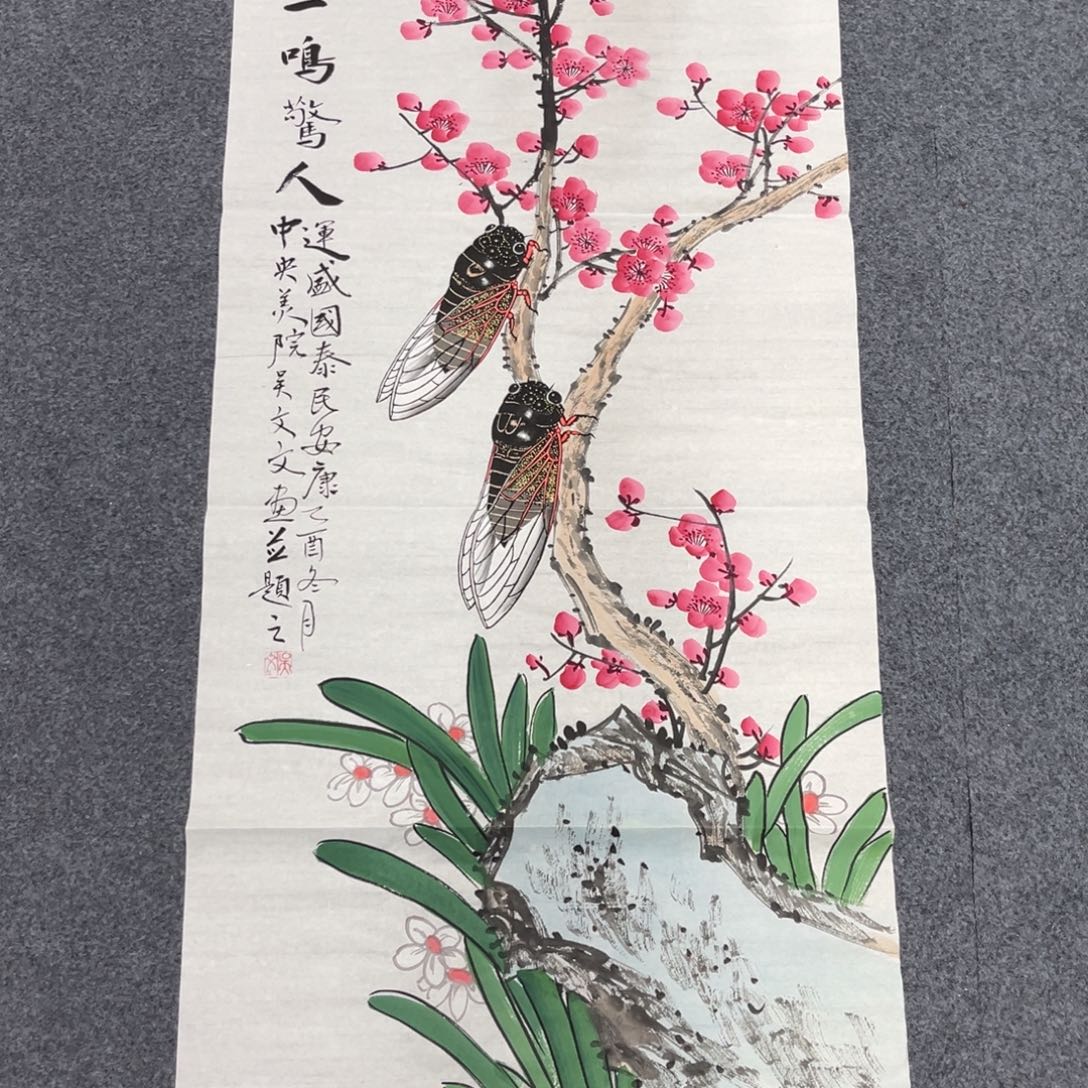 一鳴驚人
運盛國泰民安康乙酉冬月
中央美院吴文文画並題之